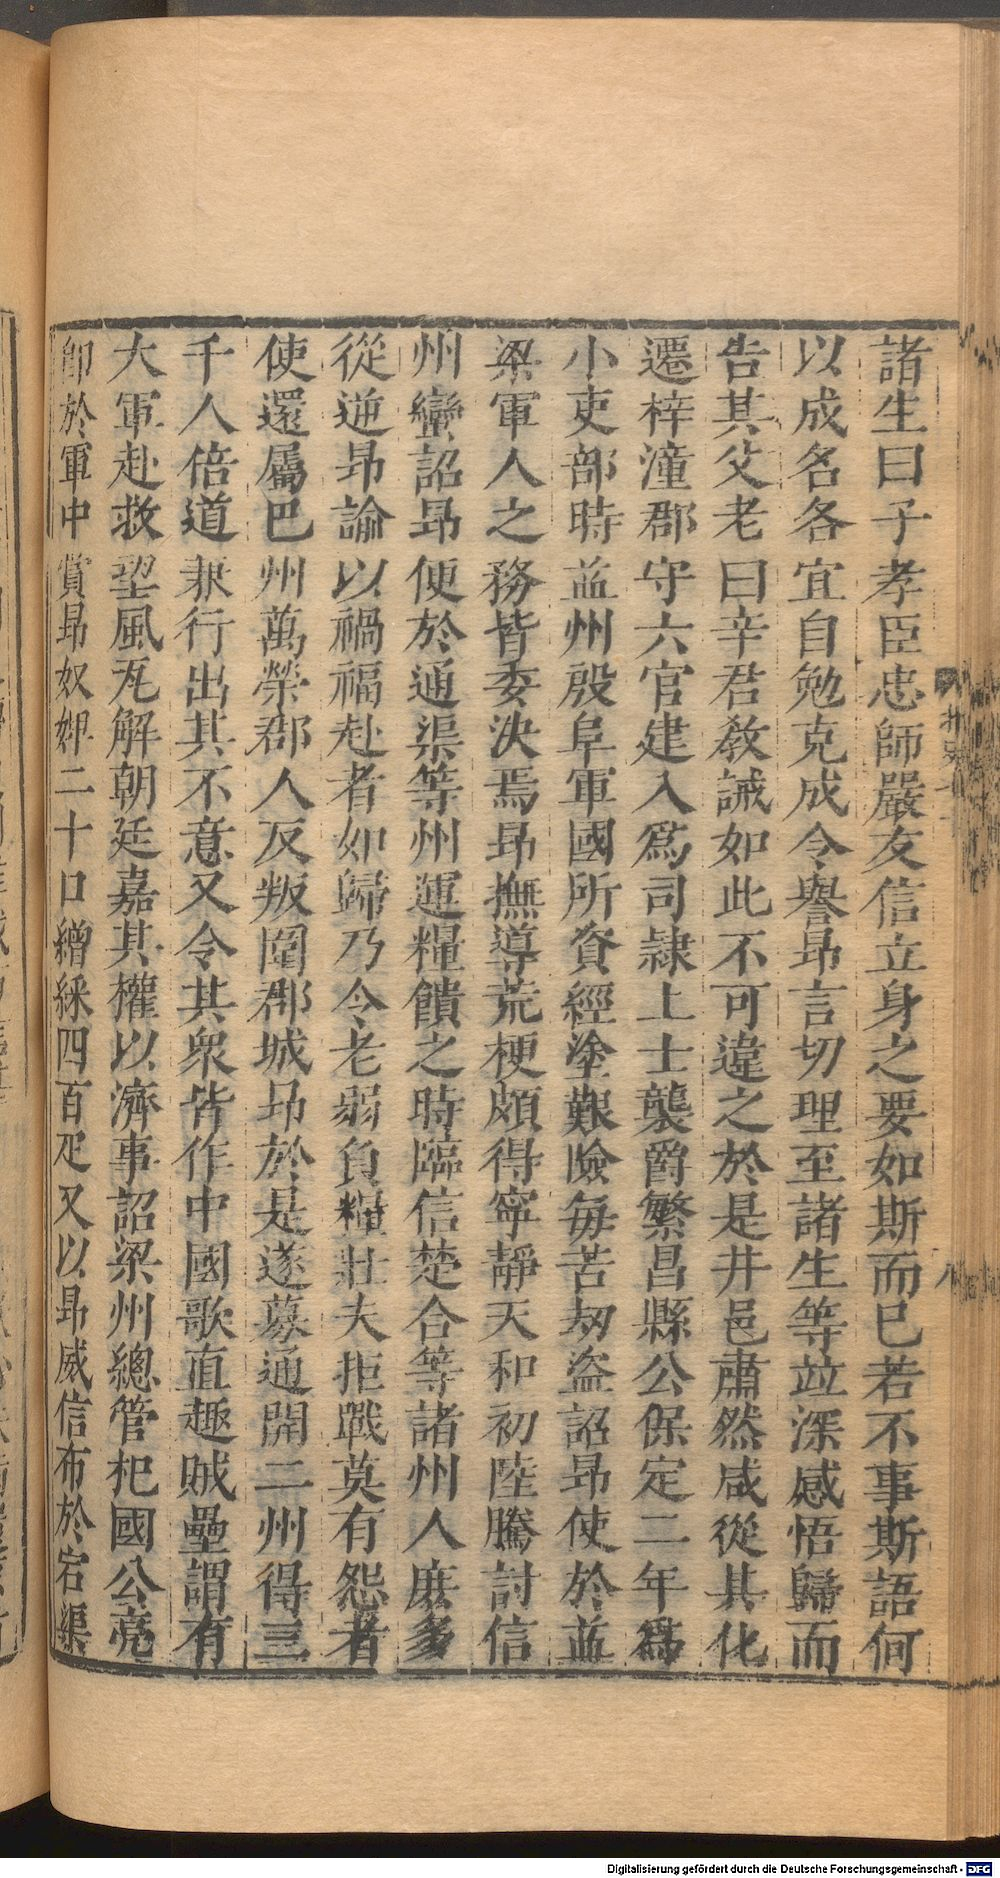 諸生曰子孝臣忠師嚴友信立身之要如斯而已若不事斯語何
以成名各宜自勉克成令譽昂言切理至諸生等竝深感悟歸而
告其父老曰辛君敎誡如此不可違之於是井邑肅然咸從其化
遷梓潼郡守六官建入爲司隷上士襲爵繁昌縣公保定二年爲
小吏部時益州殷阜軍國所資經塗艱險每苦刼盜詔昂使於益
梁軍人之務皆委決焉昂撫導荒梗頗得寧靜天和初陸騰討信
州蠻詔昂便於通渠等州運糧饋之時臨信楚合等諸州人庶多
從逆昂諭以禍福赴者如歸乃令老弱負糧壯夫拒戰莫有怨者
使還屬巴州萬榮郡人反叛圍郡城昂於是遂募通開二州得三
千人倍道兼行出其不意又令其衆皆作中國歌直趣賊壘謂有
大軍赴救望風瓦解朝廷嘉其權以濟事詔梁州總管杞國公亮
卽於軍中賞昂奴婢二十口繒綵四百疋又以昂威信布於宕渠
北史
八
Digitalisierung gefördert durch die Deutsche Forschungsgemeinschaft - DFG